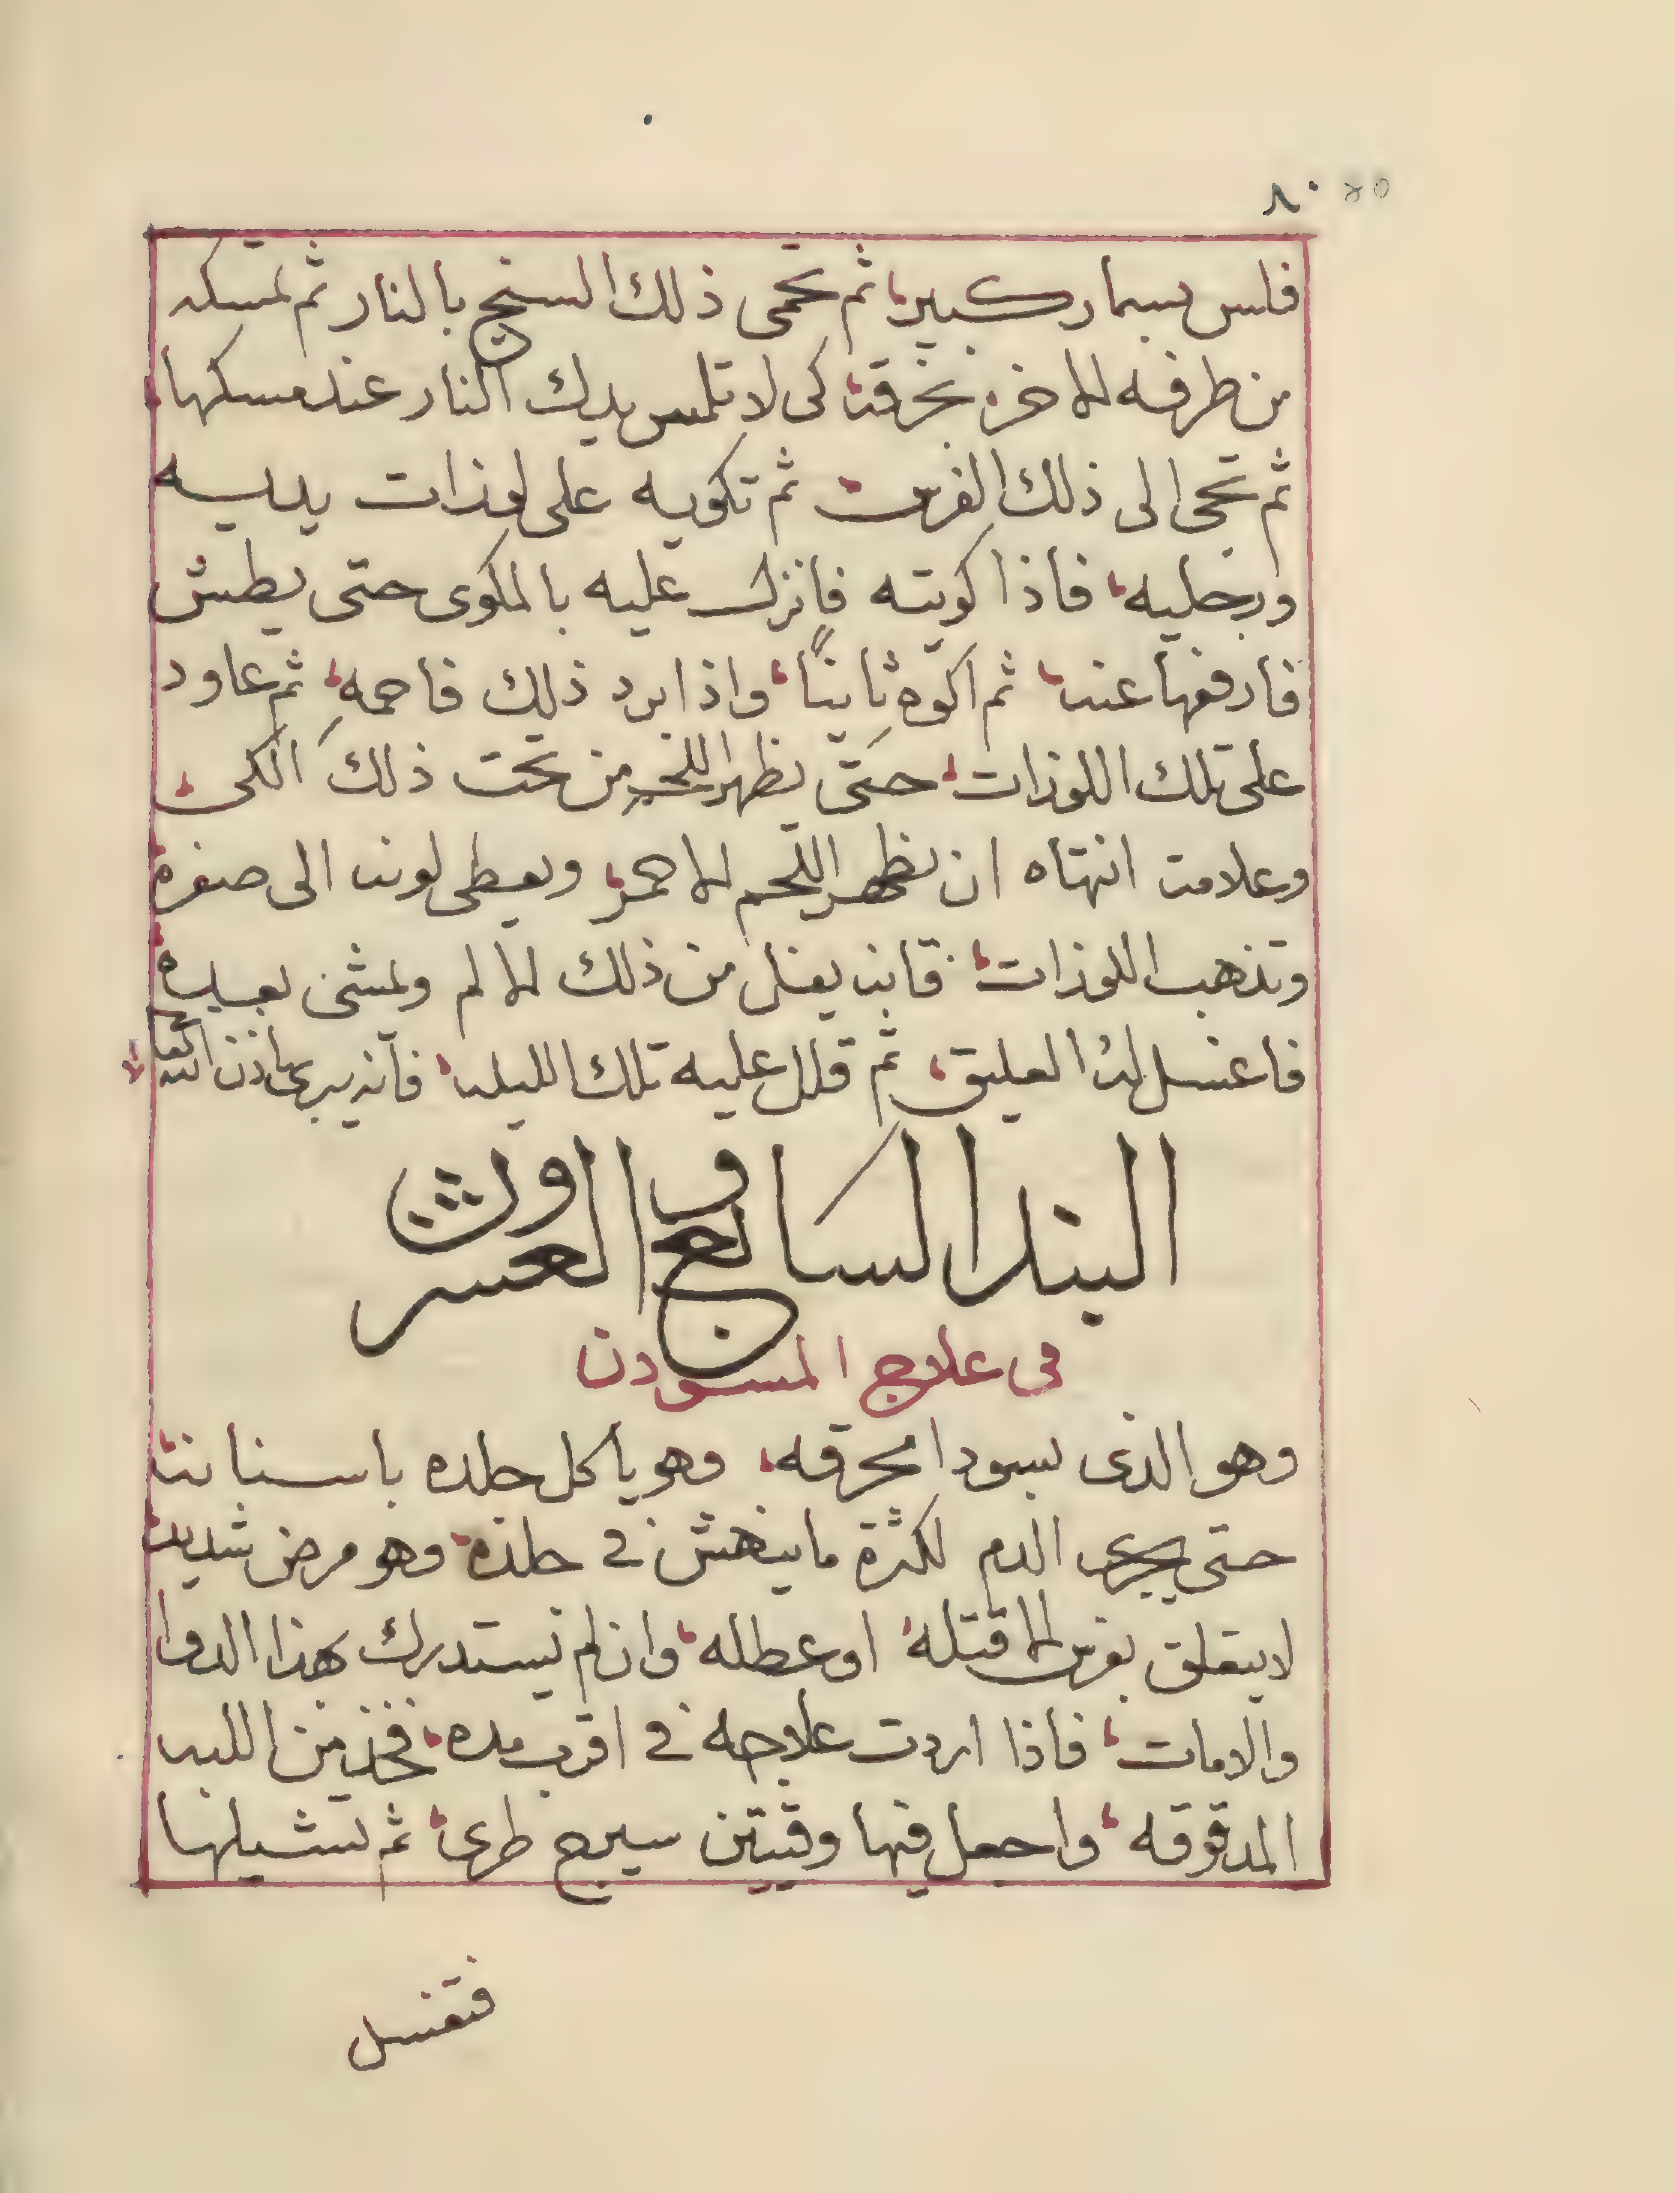 ٨٠ 80
فلس بسمار كبير، ثم تحمى ذلك السيخ بالنار ثم تمسكه
من طرفه الاخر بخرقة كى لا تلمس يدك النار عند مسكها،
ثم تجى الى ذلك الفرس، ثم تكويه على لوذات يديه
ورجليه، فاذا كويته فانزك عليه بالمكوى حتى يطش
فارفعها عنه، ثم اكوه ثانيًا، واذا برد ذلك فاحمه، ثم عاود
على تلك اللوزات، حتى يظهر اللحم من تحت ذلك الكى،
وعلامت انتهاه ان يظهر اللحم الاحمر، ويعطى لونه الى صفرة
وتذهب اللوزات، فانه يغل من ذلك الالم ولمشى بعيده
فاغسل له العليق، ثم قلل عليه تلك الليله، فانه يبرى باذن الله تعا
البند السابع والعشرون
فى علاج المسودن
وهو الذى بسودا محرقه، وهو ياكل جلده باسنانه
حتى يجرى الدم لكثرة ما ينهش فى جلده، وهو مرض شديد
لا يتعلق بفرس الا قتله، او عطله، وان لم تستدرك هذا الدوا
والامات، فاذا اردت علاجه فى اقرب مده، فخذ من اللبه
المدقوقه، واجعل فيها وقيتين سيرج طرى، ثم تشيلها
فتغسل